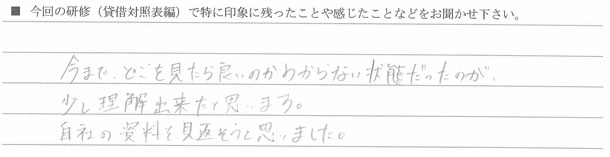 ■ 今回の研修（貸借対照表編）で特に印象に残ったことや感じたことなどをお聞かせ下さい。
今まで、どこを見たら良いのかわからない状態だったのが、
少し理解出来たと思います。
自社の資料を見返そうと思いました。